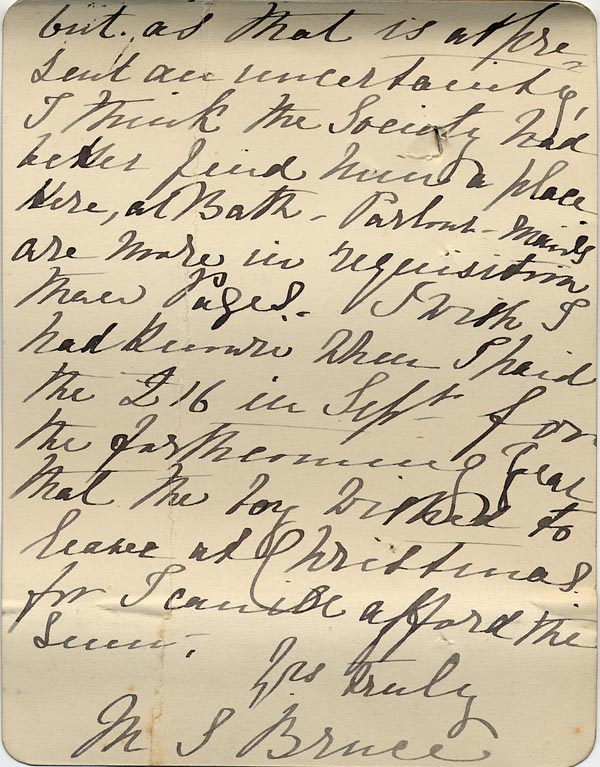 but. as that is at pre-
sent an uncertainity,
I think the Society had
better find him a place
Here, at Bath - Parlour-Maids
are more in requisition
than Pages. I wish I
had known when I paid
the £16 in Sept for
the forthcoming Year
that the boy wished to
leave at Christmas.
for I can ill afford the
sum.
Yrs truly
M S Bruce